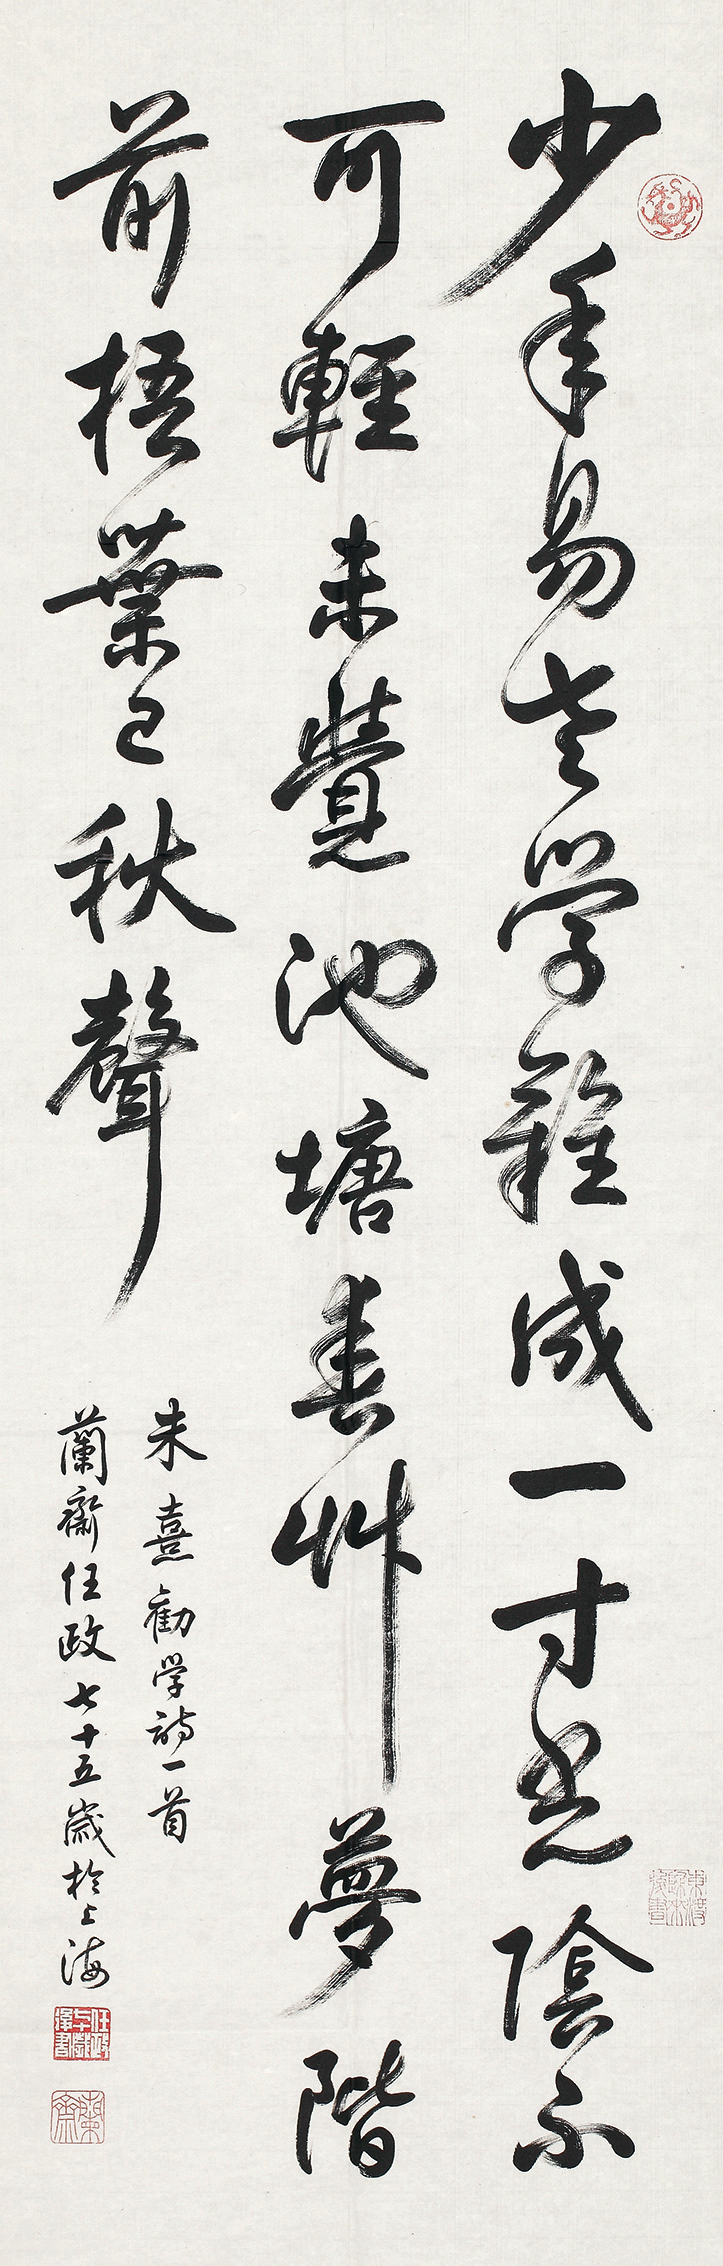 少年易老学難成一寸光陰不
可輕未覺池塘春艸夢階
前梧葉已秋聲
朱熹勸学詩一首
蘭齋任政七十五歲於上海
蘭齋